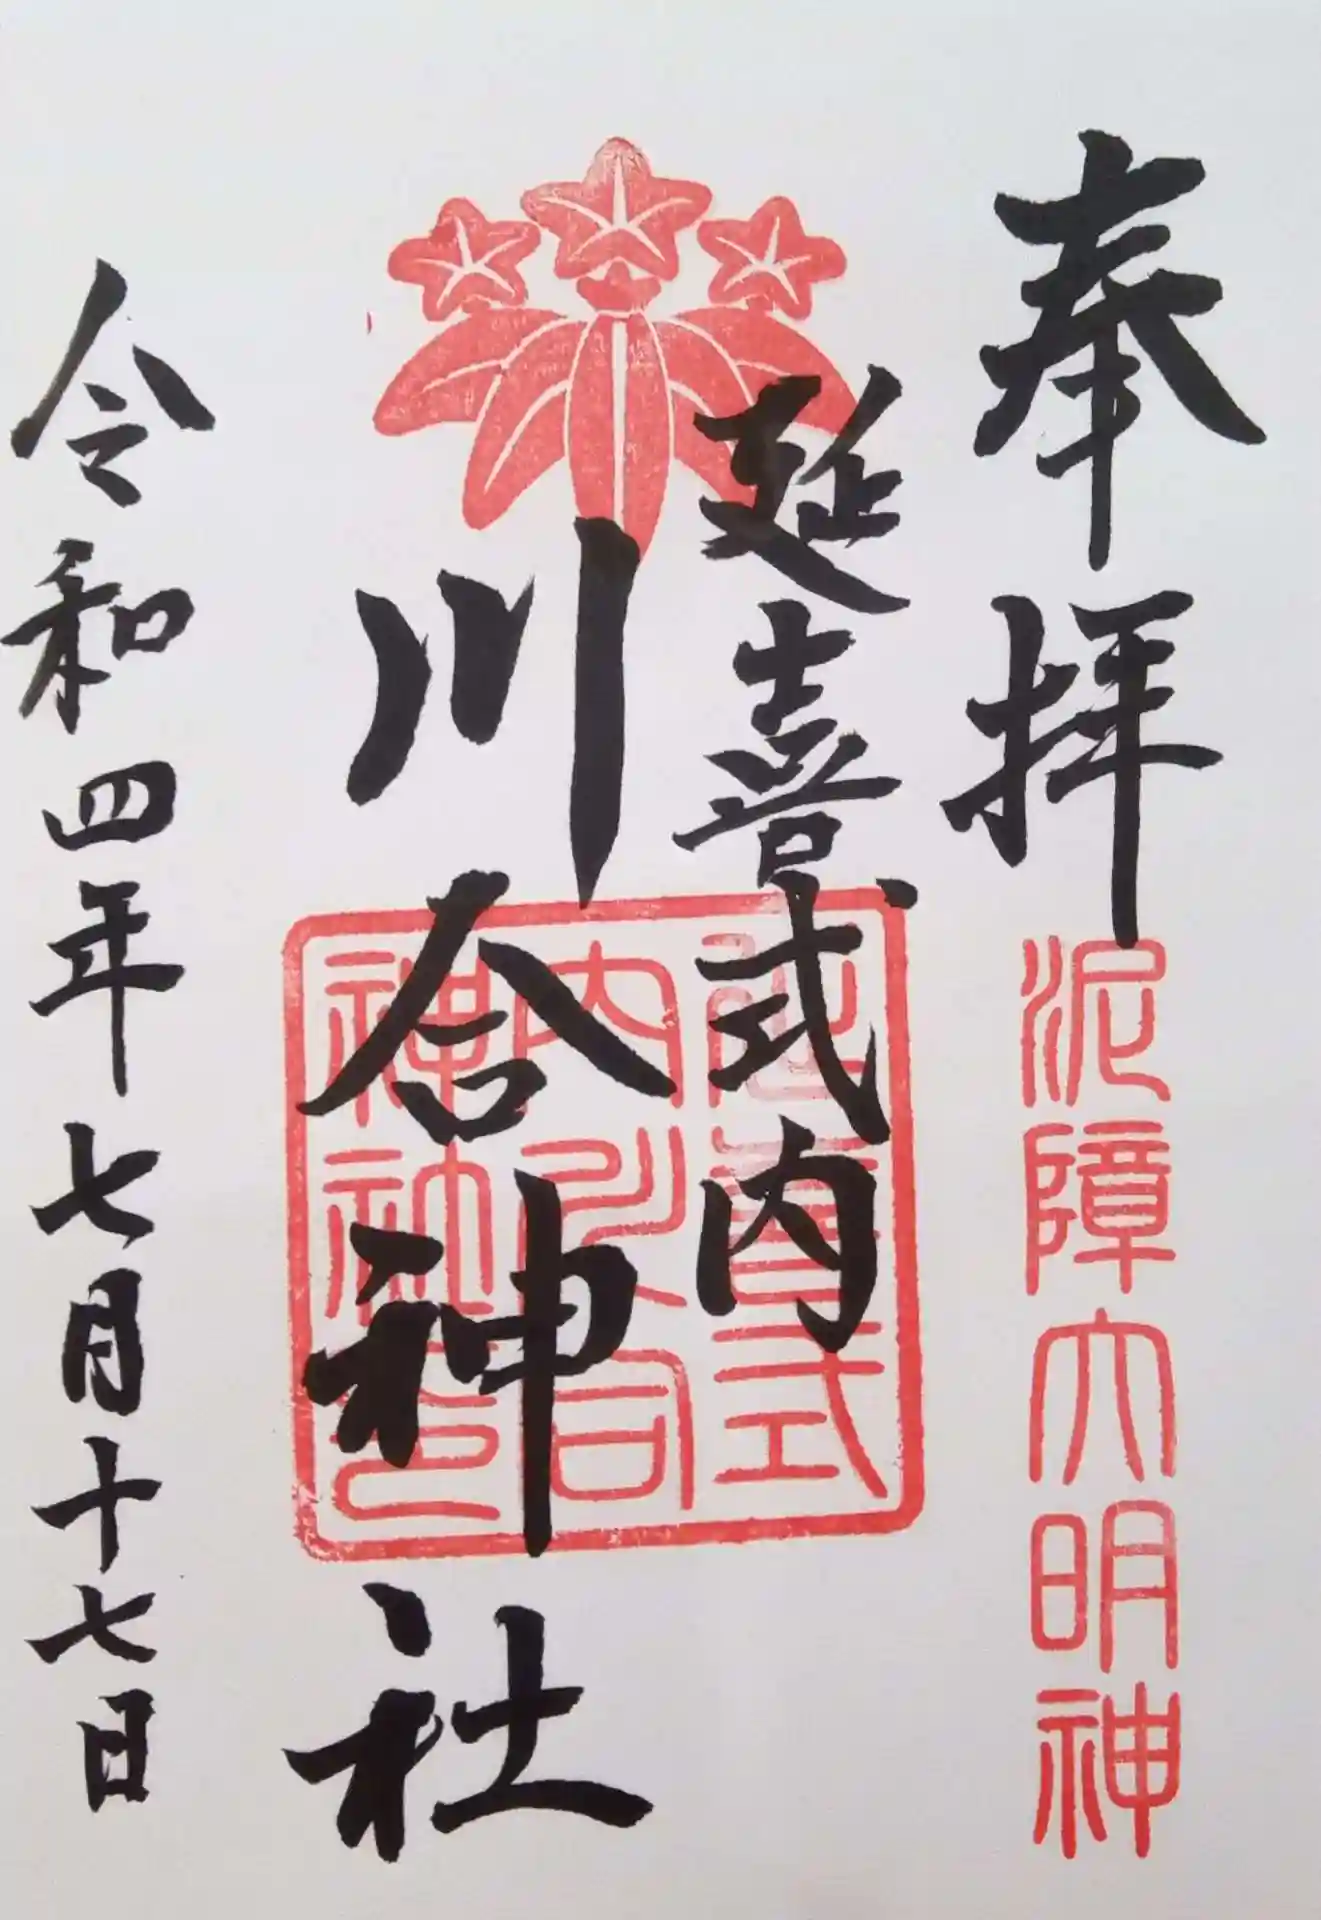 奉拝
泥障大明神
延喜式内
川合神社
延喜式
内川合
神社印
令和四年七月十七日